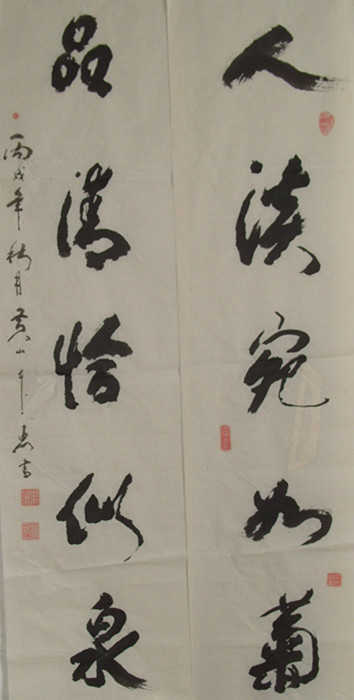 人淡宛如
品清恰似泉
丙戌年秋月黄山